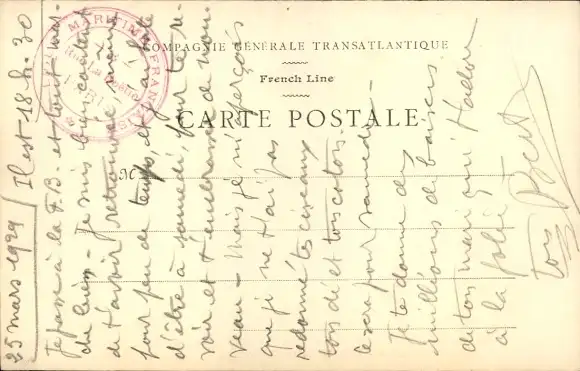 COMPAGNIE GÉNÉRALE TRANSATLANTIQUE
French Line
CARTE POSTALE
M
MARITIME FRANÇAISE
PARIS
25 mars 1929 / Il est 18 h. 30
Je passe à la F.B. et tout mar-
che bien - Je suis bien content
de t'avoir retrouvée moins
pour peu de temps, et j'ai hâte
d'être à samedi, pour te re-
voir et t'embrasser de nou-
veau - Mais je m'aperçois
que je ne t'ai pas
redonné tes ciseaux
tondi et toscotois.
le sera pour samedi -
Je te donne des
millions de baisers
de ton mari qui t'adore
à la folie
ton Bert